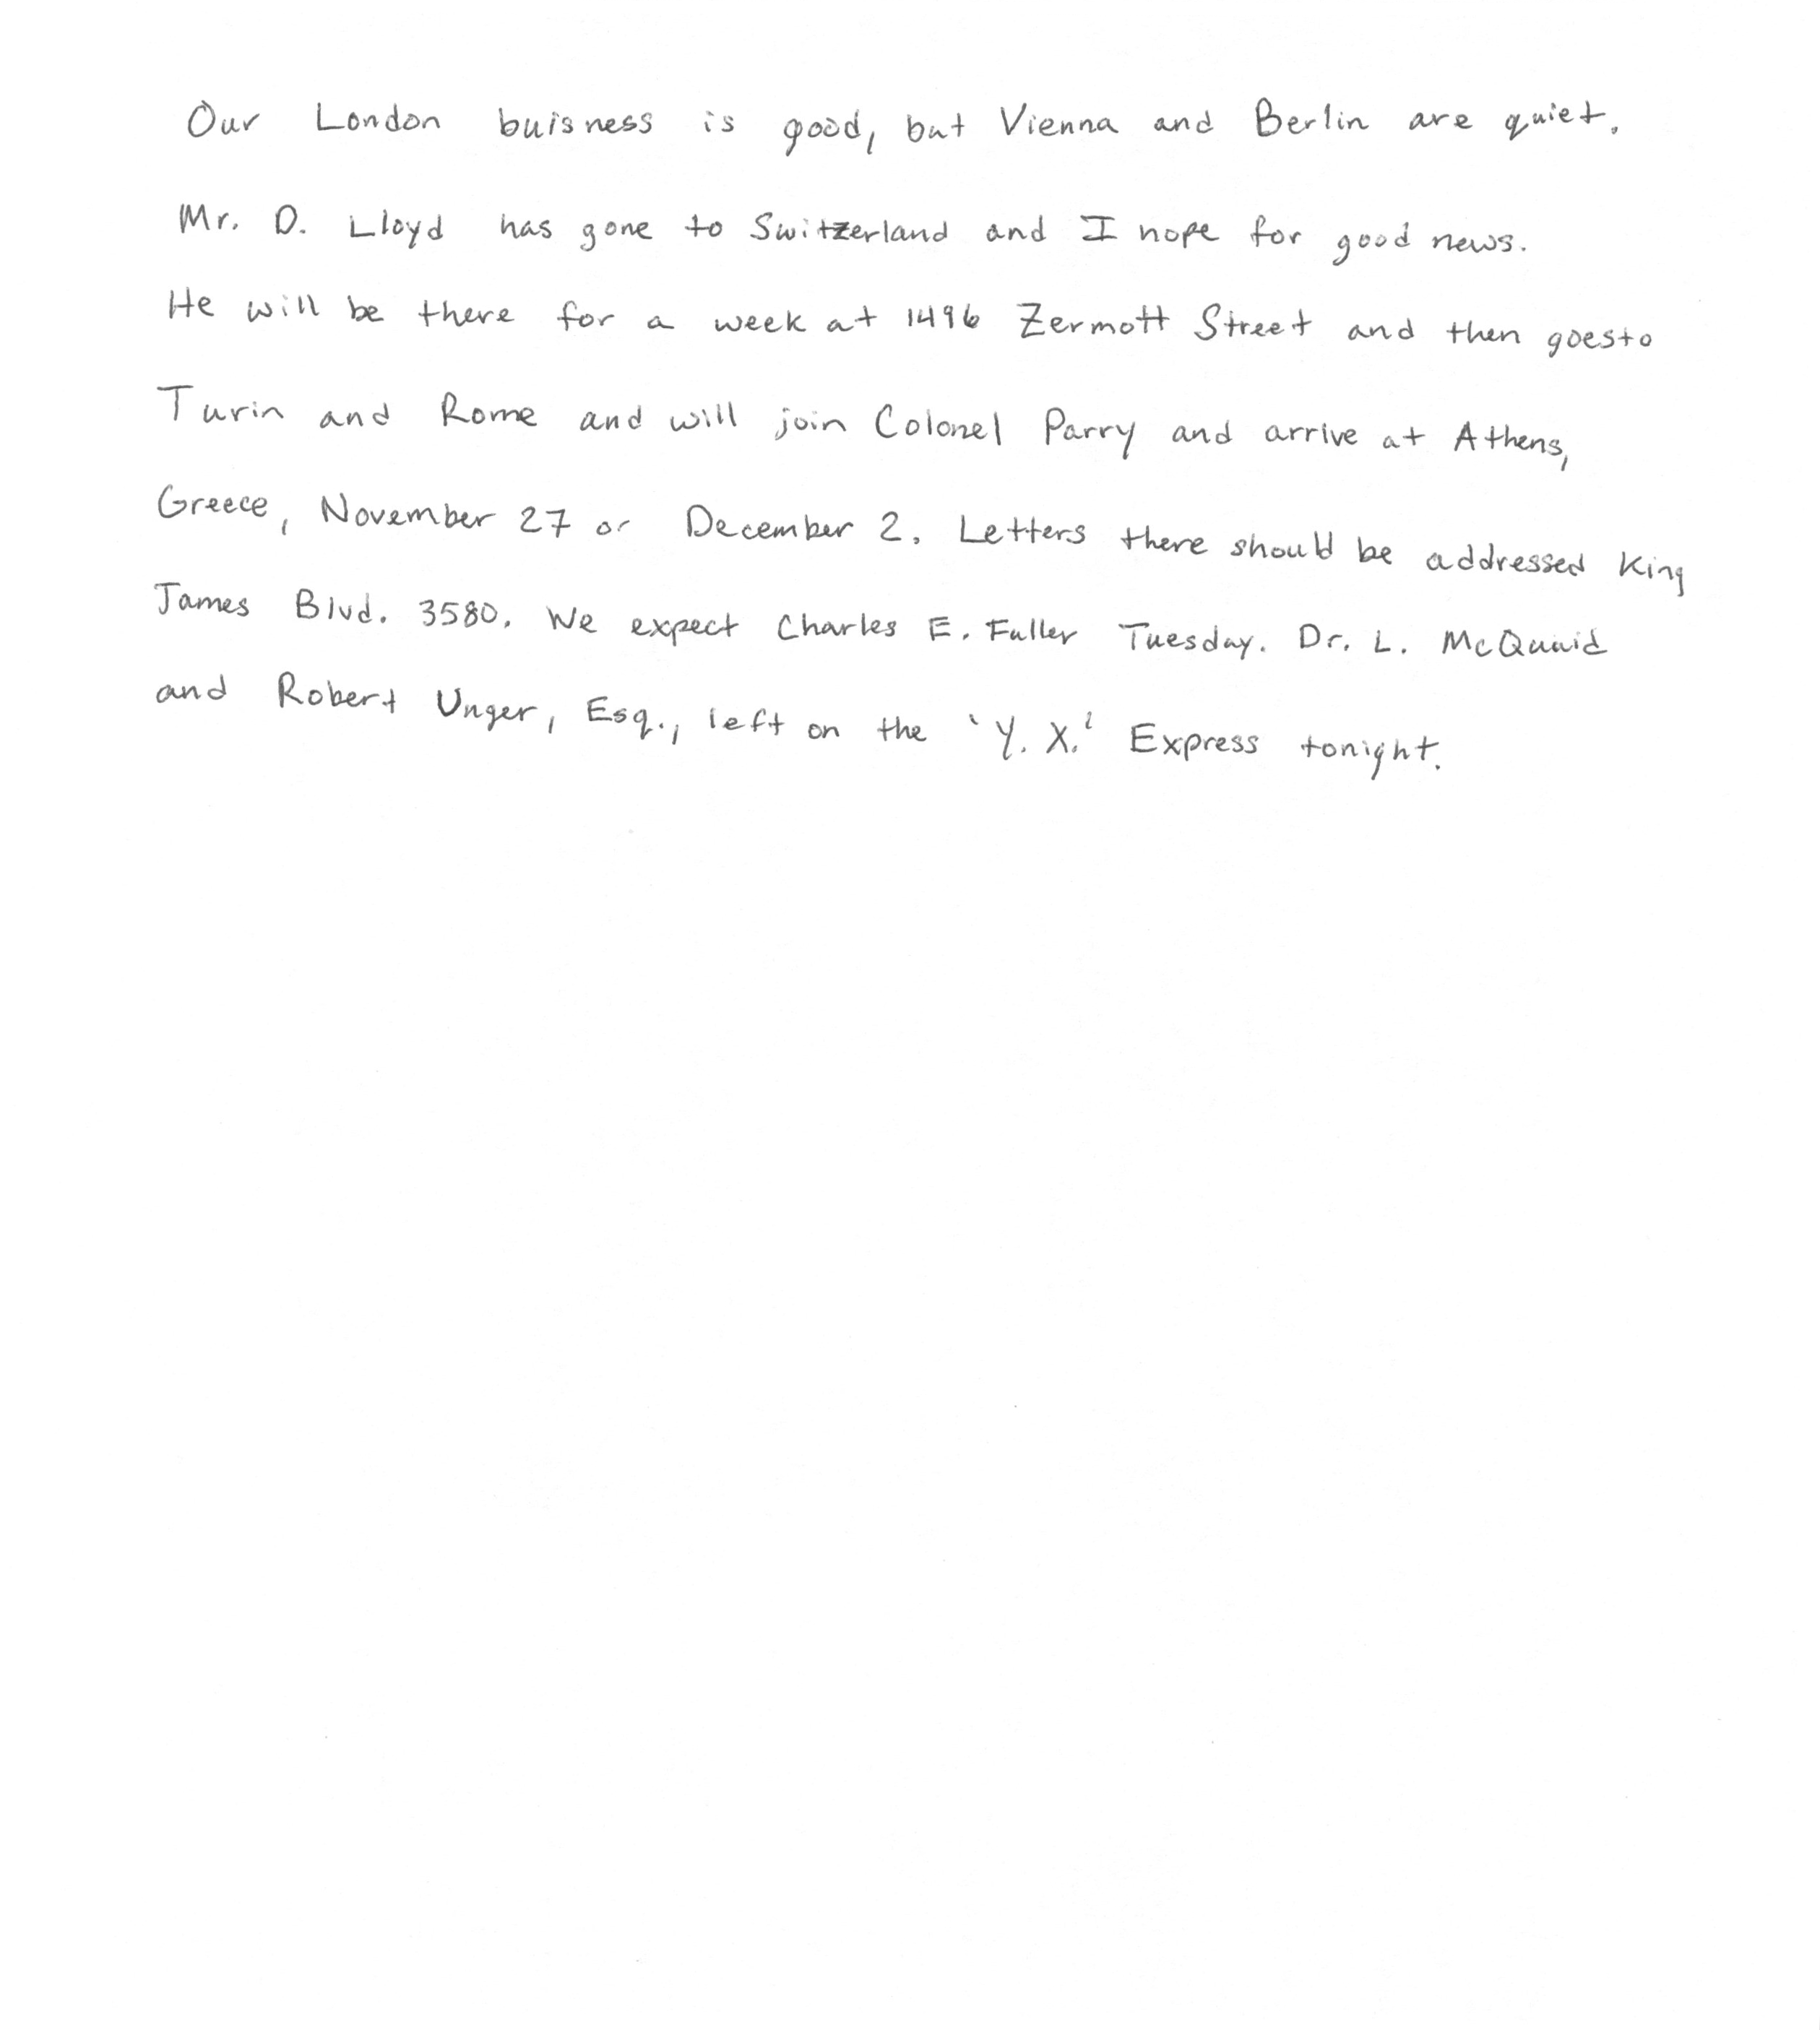 Our London buisness is good, but Vienna and Berlin are quiet.
Mr. D. Lloyd has gone to Switzerland and I hope for good news.
He will be there for a week at 1496 Zermott Street and then goes to
Turin and Rome and will join Colonel Parry and arrive at Athens,
Greece, November 27 or December 2. Letters there should be addressed King
James Blvd. 3580. We expect Charles E. Fuller Tuesday. Dr. L. McQuaid
and Robert Unger, Esq., left on the 'Y. X.' Express tonight.